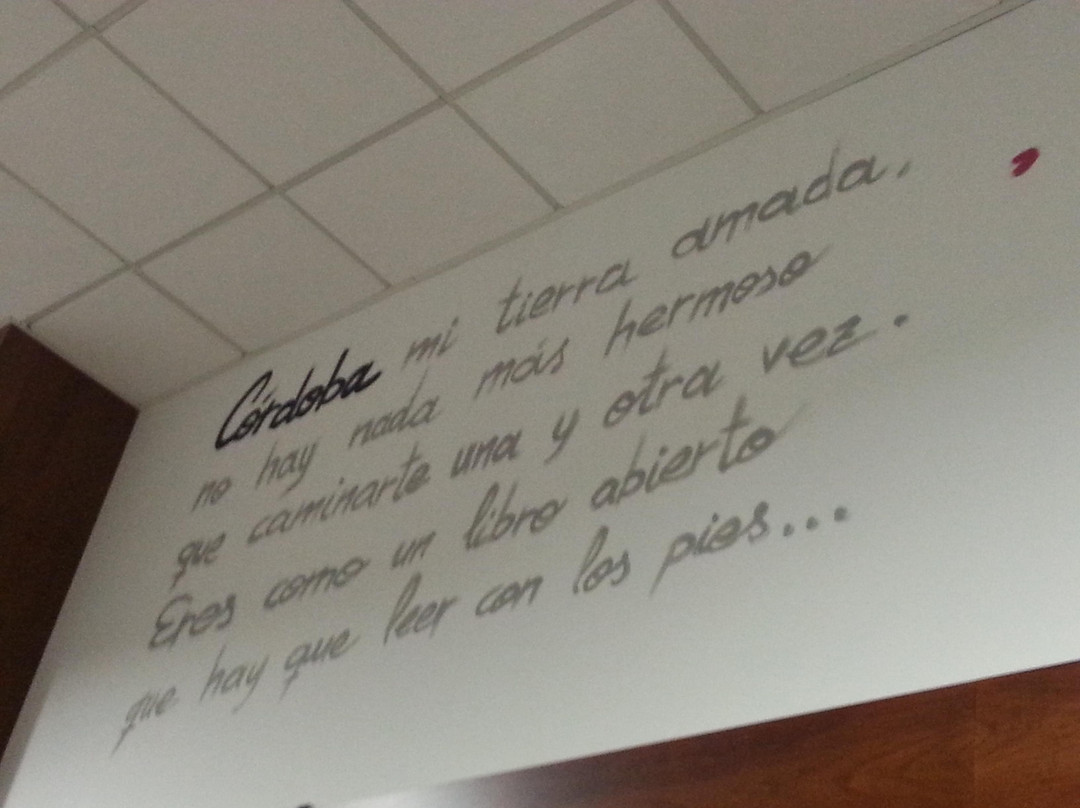 Córdoba mi tierra amada,
no hay nada más hermoso
que caminarte una y otra vez.
Eres como un libro abierto
que hay que leer con los pies...